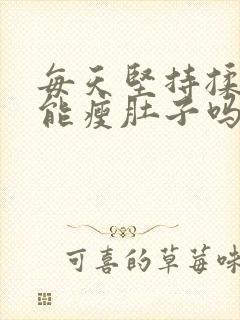 每天坚持揉
能瘦肚子吗
可喜的草莓味